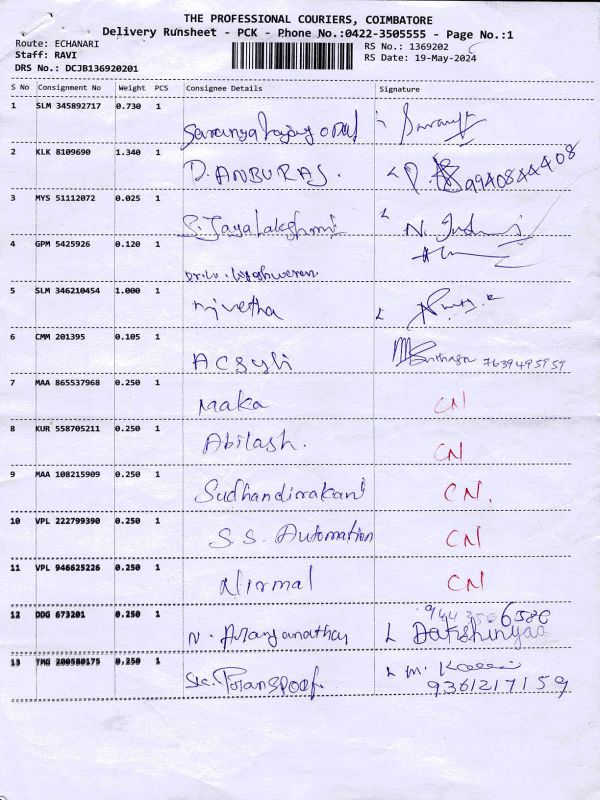 THE PROFESSIONAL COURIERS, COIMBATORE
Delivery Runsheet - PCK - Phone No.:0422-3505555 - Page No.:1
Route: ECHANARI
RS No.: 1369202
Staff: RAVI
RS Date: 19-May-2024
DRS No.: DCJB136920201
S No Consignment No Weight PCS Consignee Details Signature
1 SLM 345892717 0.730 1
2 KLK 8109690 1.340 1 D. ANBURAJ. 9940844408
3 MYS 51112072 0.025 1 S. Jayalakshmi
4 GPM 5425926 0.120 1
5 SLM 346210454 1.000 1 nivetha
6 CMM 201395 0.105 1 7639495959
7 MAA 865537968 0.250 1 naaka CN
8 KUR 558705211 0.250 1 Abilash. CN
9 MAA 108215909 0.250 1 CN.
10 VPL 222799390 0.250 1 S.S. Automation CN
11 VPL 946625226 0.250 1 Nirmal CN
12 DDG 673201 0.250 1 N.
13 TMG 200580175 0.250 1 9361217159